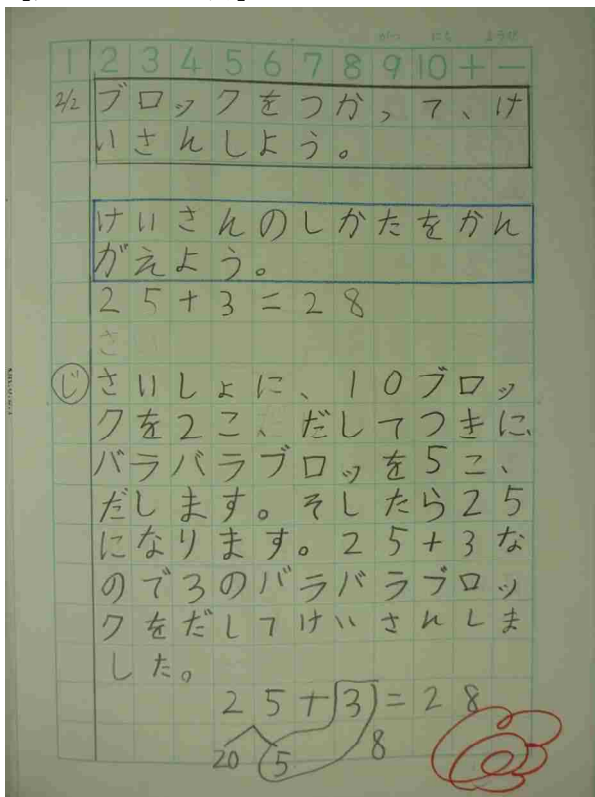 がつ にち ようび
1 2 3 4 5 6 7 8 9 10 + -
2/2 ブロックをつかって、け
いさんしよう。
けいさんのしかたをかん
がえよう。
25+3=28
さ
じ さいしょに、10ブロッ
クを2こ、だしてつきに、
バラバラブロッを5こ、
だします。そしたら25
になります。25+3な
ので3のバラバラブロッ
クをだしてけいさんしま
した。
25+3=28
20 5 8